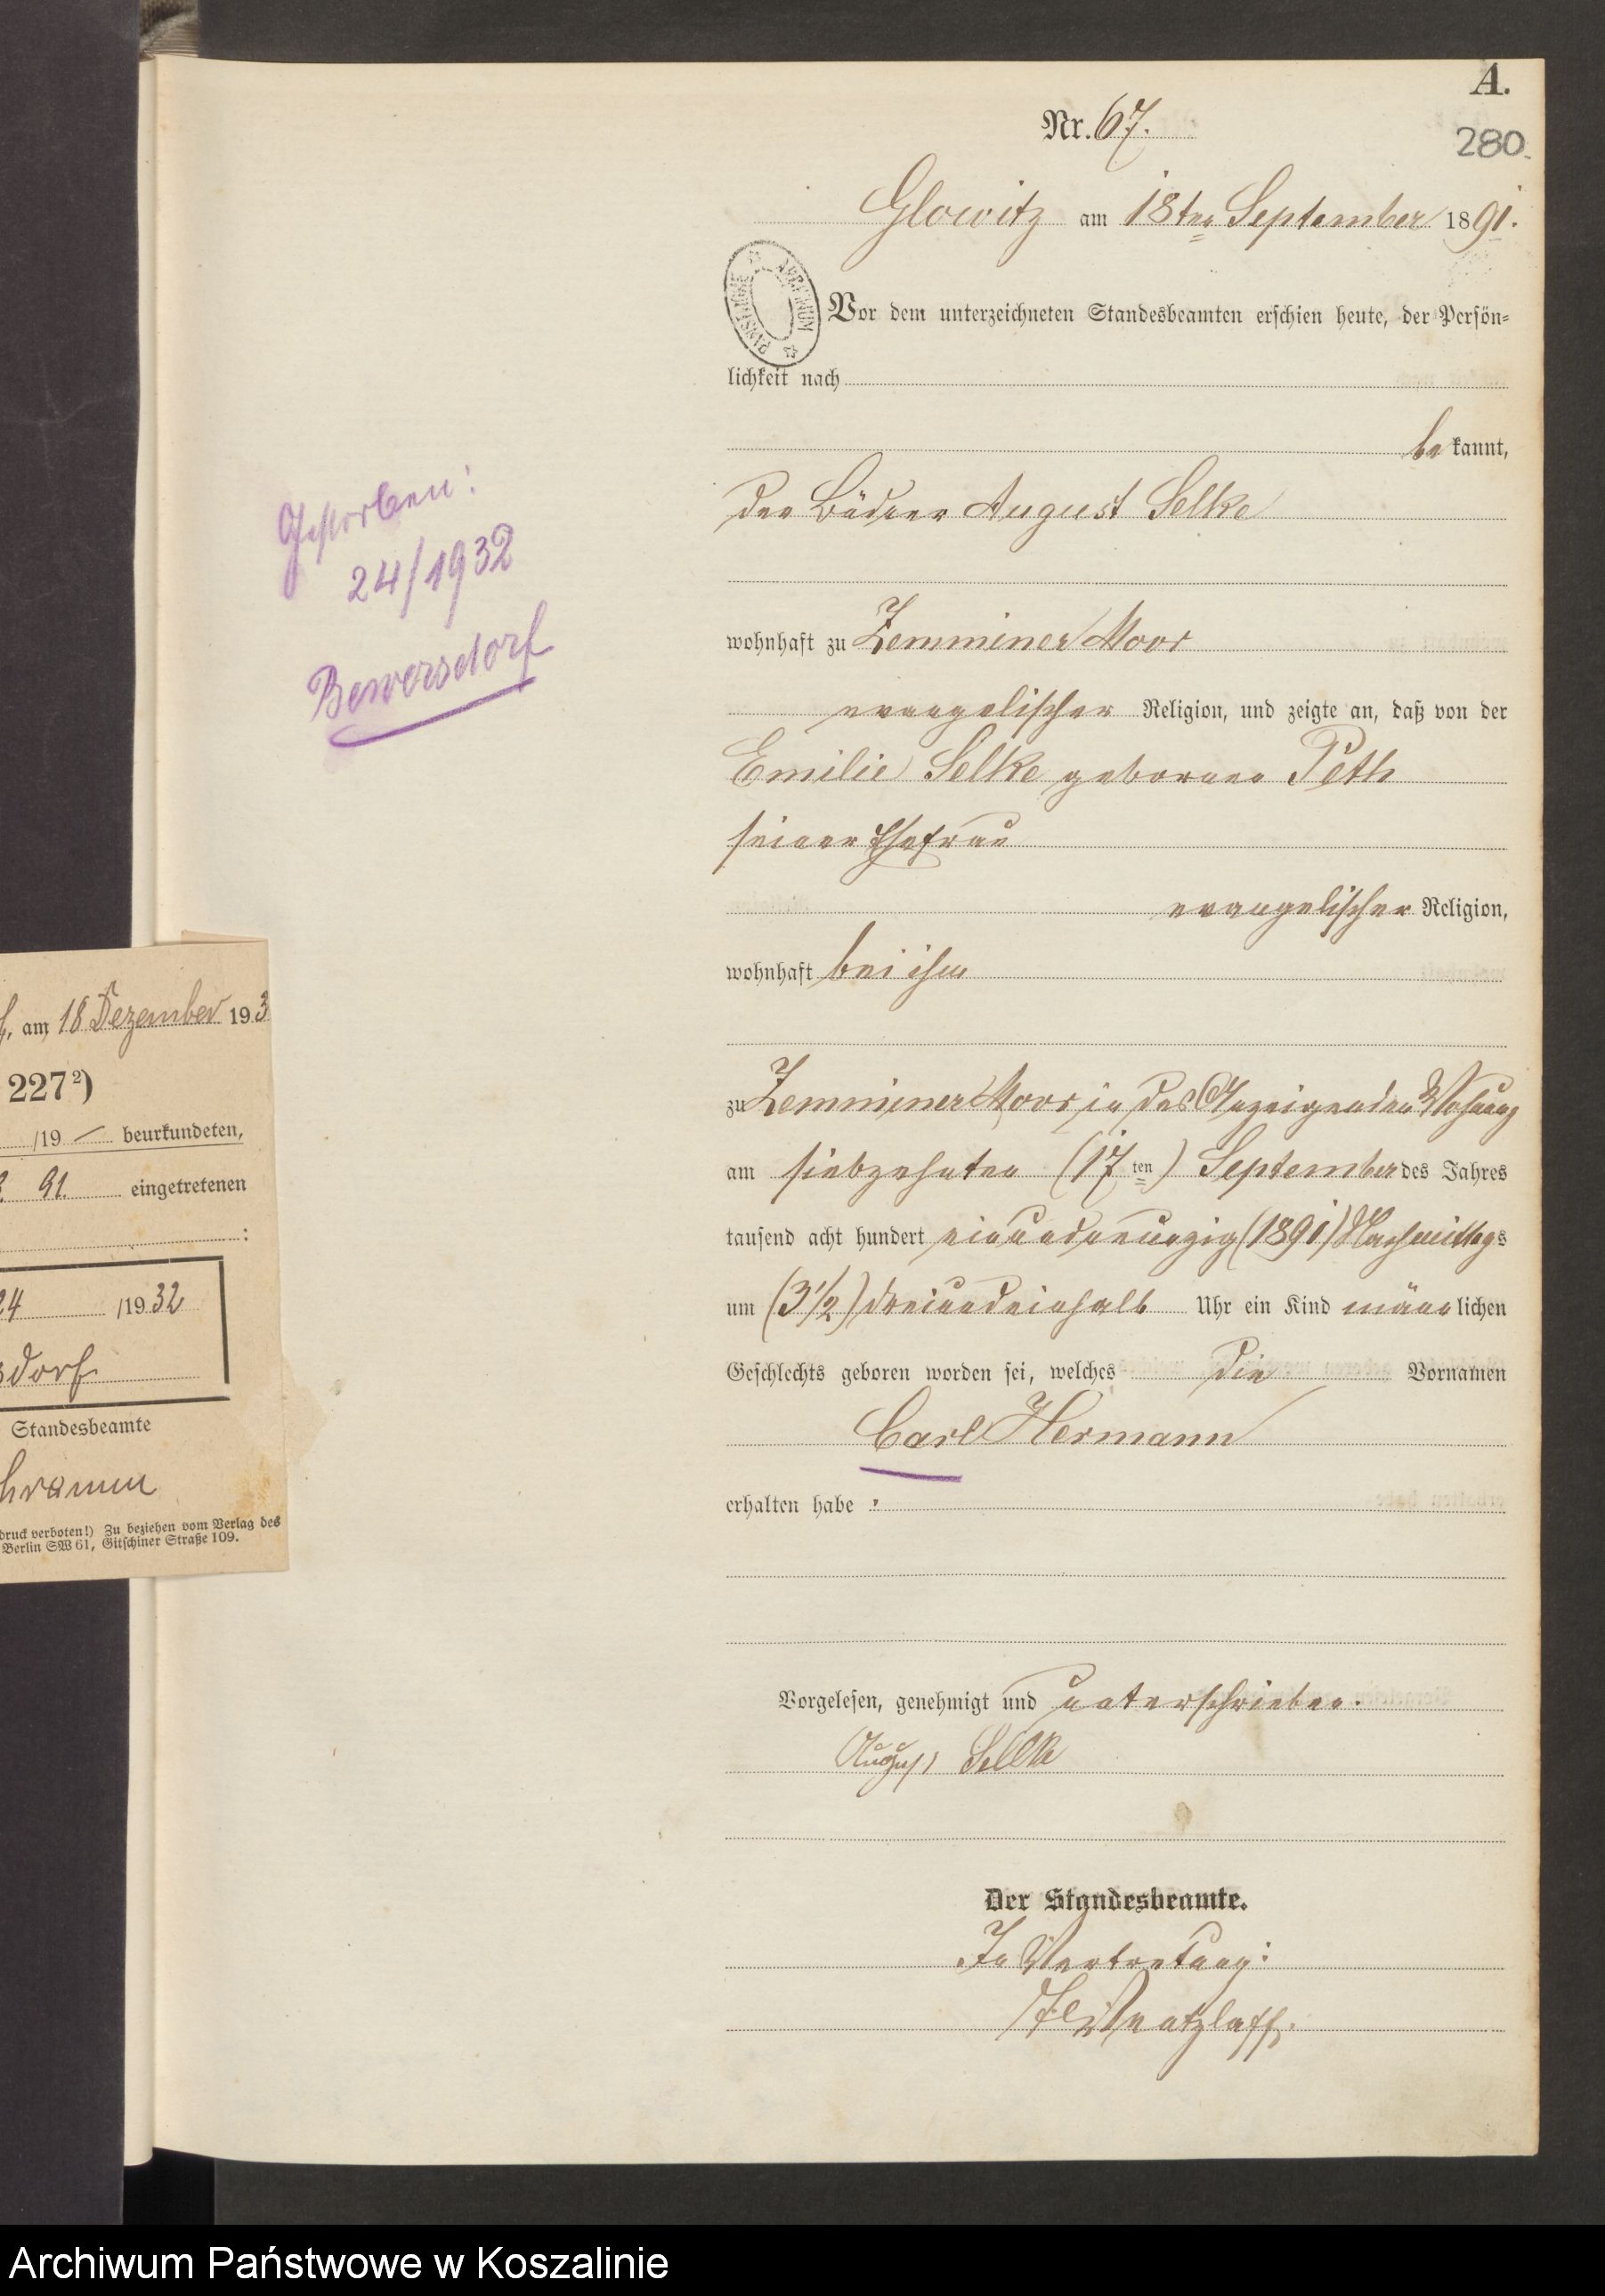 A.
Nr. 67.
280.
Glowitz am 18ten September 1891.
ARCHIWUM PAŃSTWOWE
Vor dem unterzeichneten Standesbeamten erschien heute, der Persön-
lichkeit nach
bekannt,
der Büdner August Selke
wohnhaft zu Zemminer Moor
evangelischer Religion, und zeigte an, daß von der
Emilie Selke geborene Peth
seiner Ehefrau
evangelischer Religion,
wohnhaft bei ihm
zu Zemminer Moor in des Anzeigenden Wohnung
am siebzehnten (17ten) September des Jahres
tausend acht hundert einundneunzig (1891) Nachmittags
um (3 1/2) dreiundeinhalb Uhr ein Kind männlichen
Geschlechts geboren worden sei, welches die Vornamen
Carl Hermann
erhalten habe.
Vorgelesen, genehmigt und unterschrieben.
August Selke
Der Standesbeamte.
In Vertretung:
Gestorben:
24/1932
Bewersdorf
f, am 18 Dezember 193
227²)
/19 — beurkundeten,
91. eingetretenen
:
24 /1932
sdorf
Standesbeamte
hramm
druck verboten!) Zu beziehen vom Verlag des
Berlin SW 61, Gitschiner Straße 109.
Archiwum Państwowe w Koszalinie